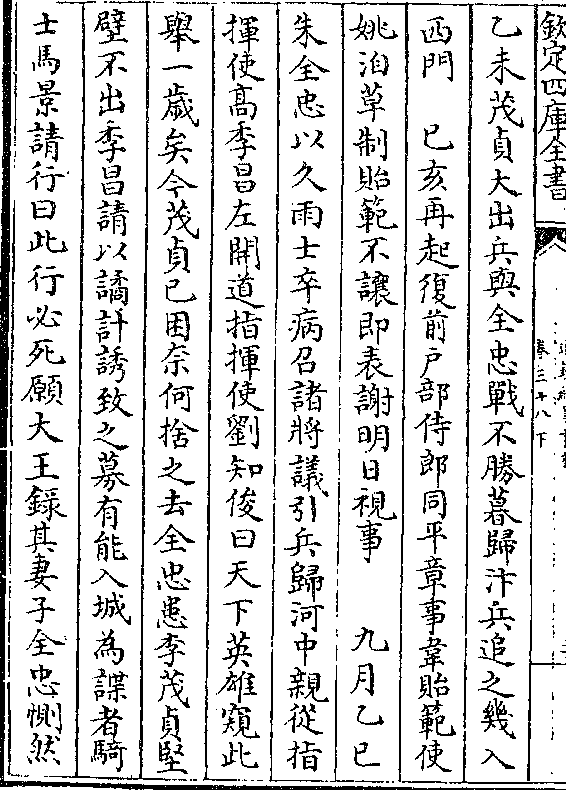 欽定四庫全書
卷三十八下
乙未茂貞大出兵與全忠戰不勝暮歸汴兵追之幾入
西門　已亥再起復前戶部侍郎同平章事韋貽範使
姚洎草制貽範不讓即表謝明日視事　九月乙巳
朱全忠以久雨士卒病召諸將議引兵歸河中親從指
揮使高季昌左開道指揮使劉知俊曰天下英雄窺此
舉一歲矣今茂貞已困奈何捨之去全忠患李茂貞堅
壁不出季昌請以譎計誘致之募有能入城為諜者騎
士馬景請行曰此行必死願大王錄其妻子全忠惻然